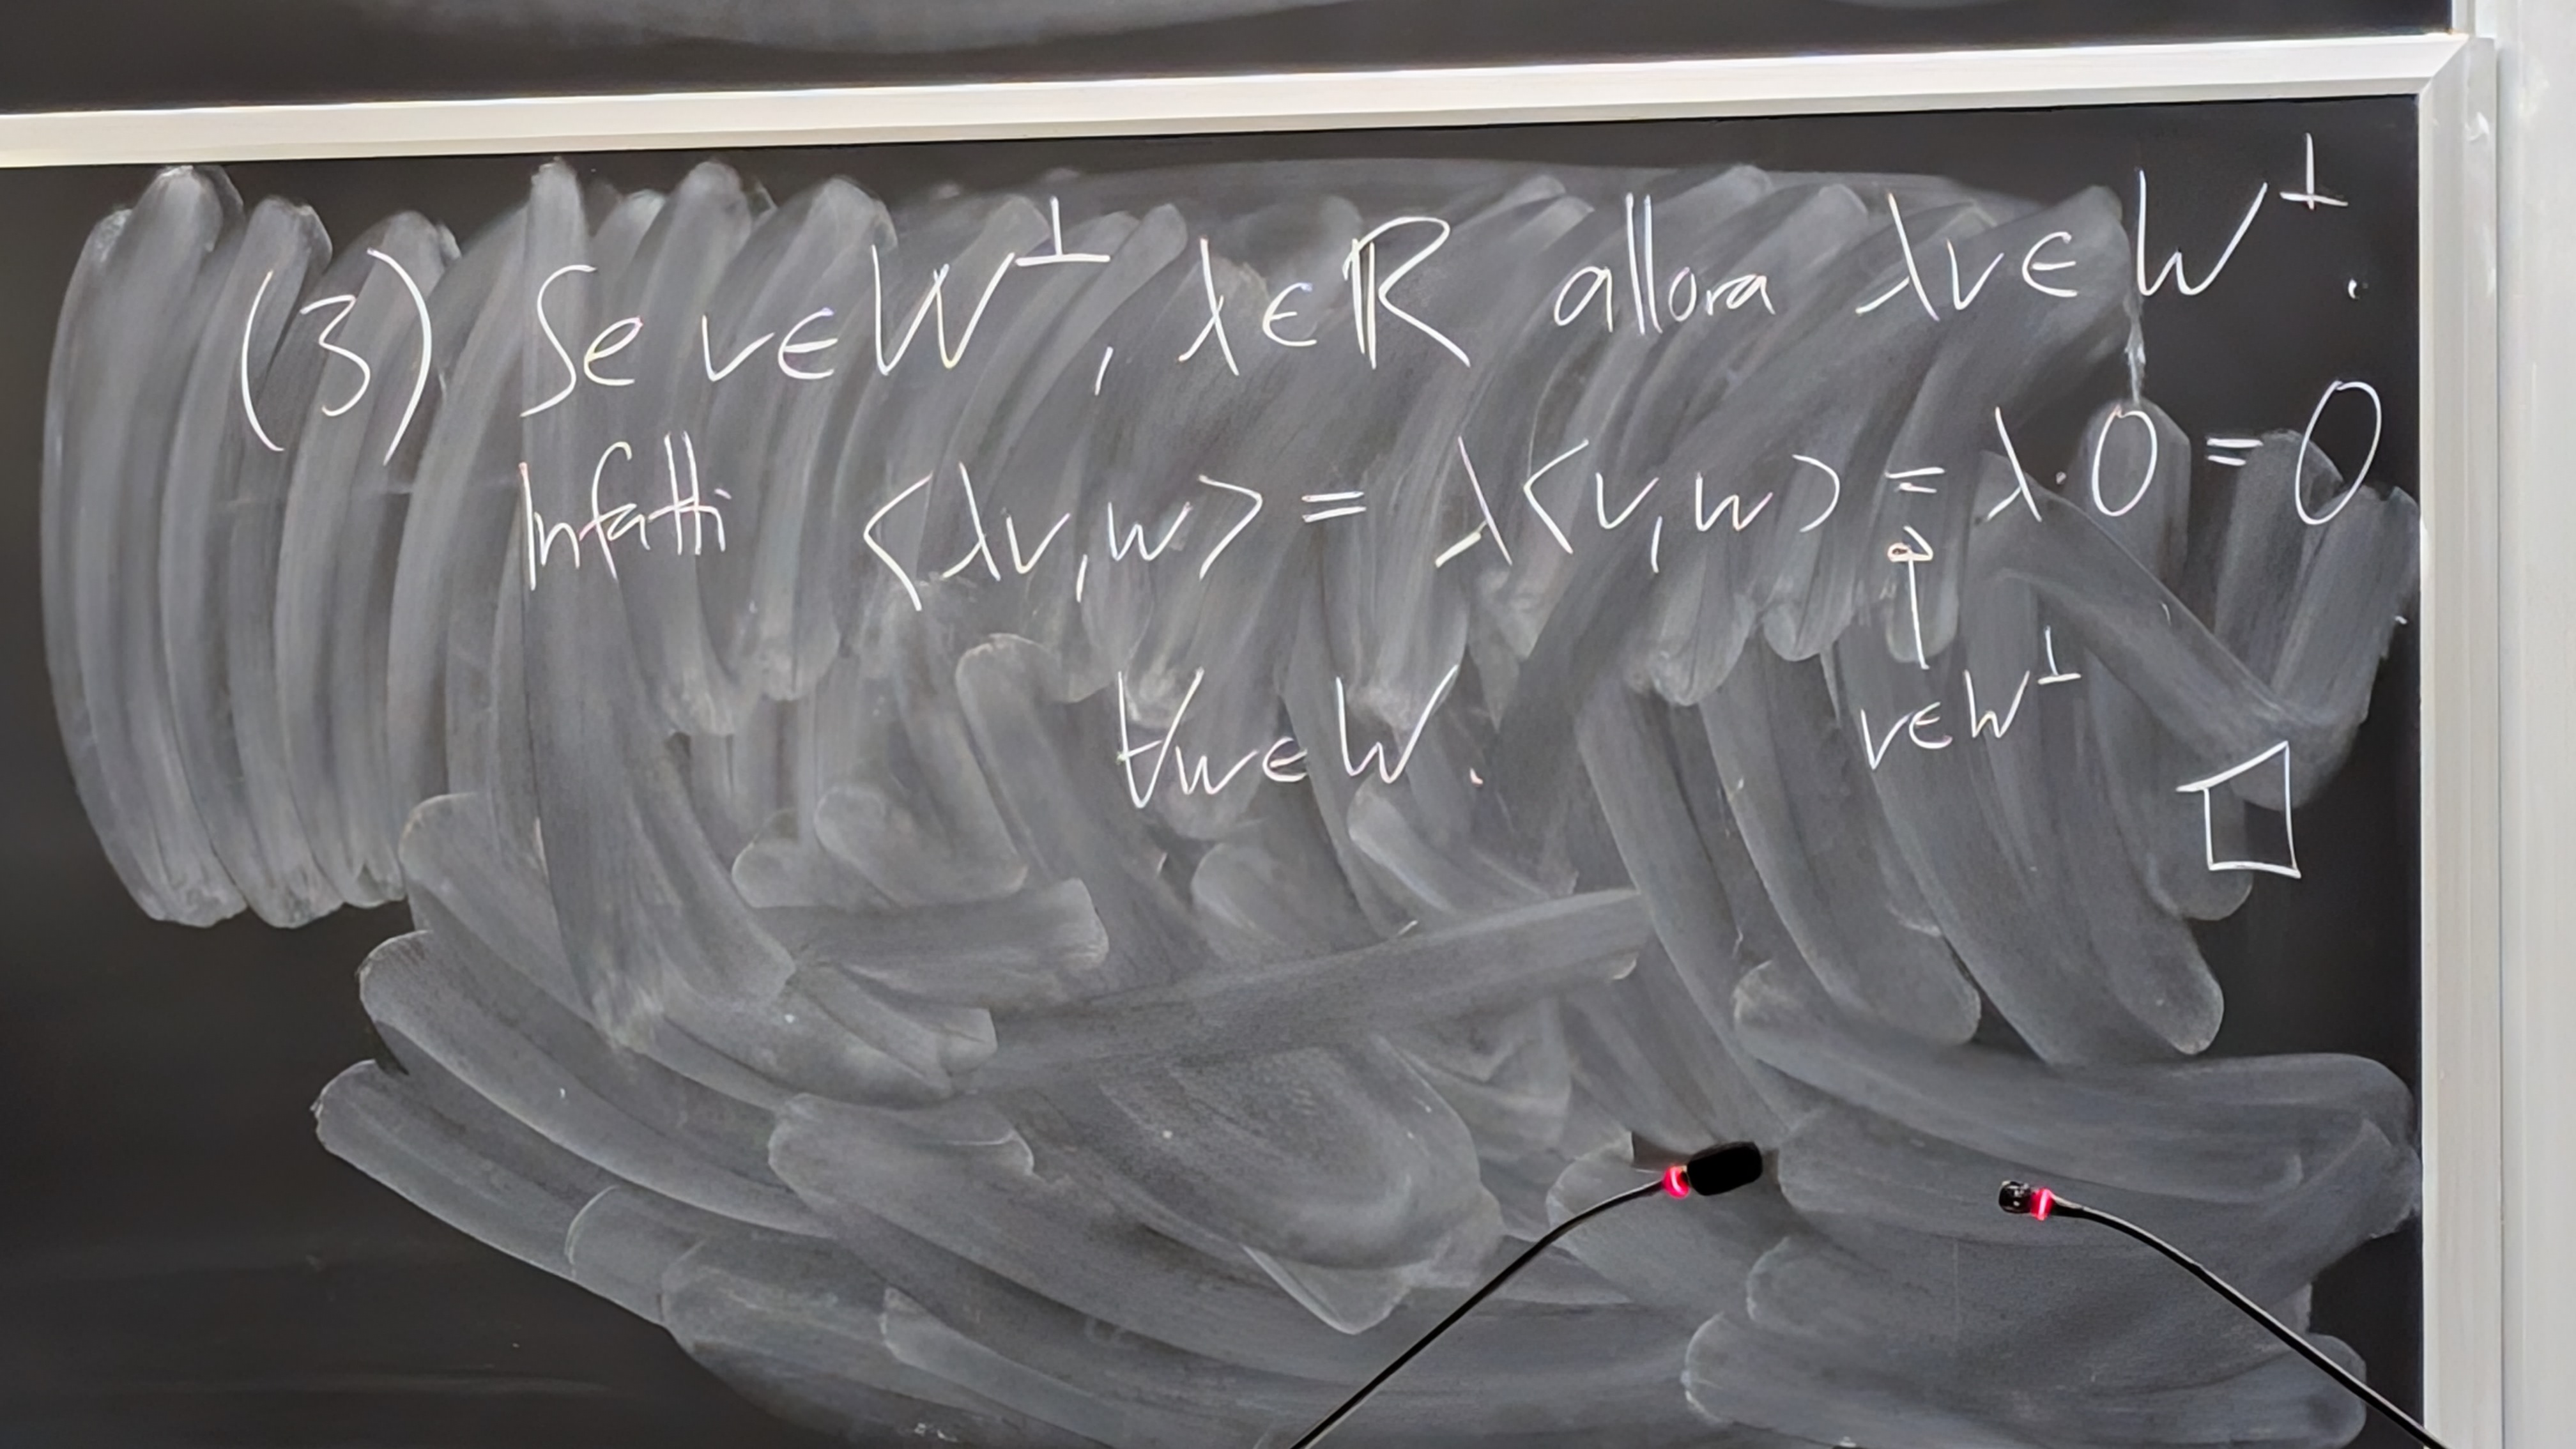 (3) Se v∈W⊥, λ∈ℝ allora λv∈W⊥.
Infatti <λv,w> = λ<v,w> = λ·0 = 0
↑
∀w∈W. v∈W⊥
□